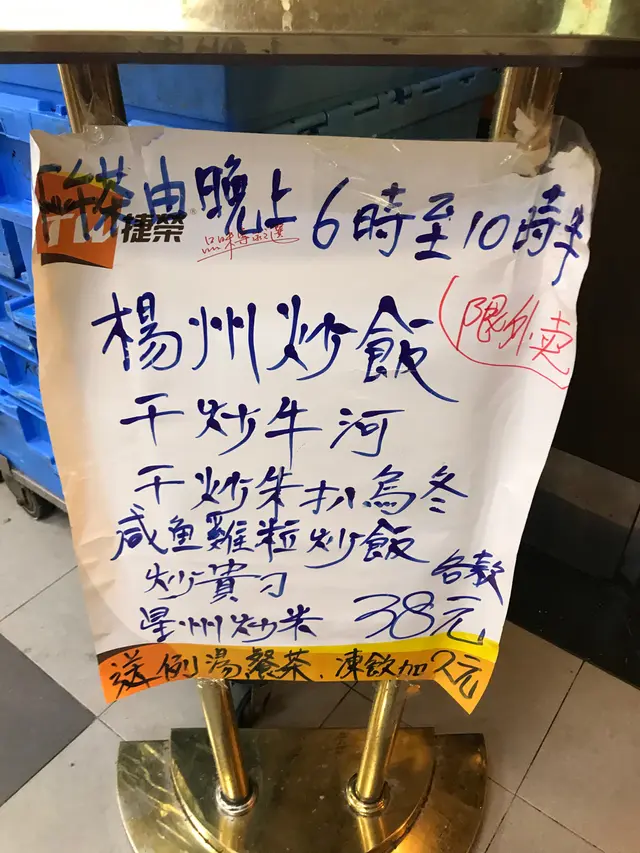 下午茶由晚上6時至10時半
捷榮
限外卖
楊州炒飯
干炒牛河
干炒朱扒烏冬
咸鱼雞粒炒飯
炒貴刁
星州炒米 38元
送例湯餐茶.凍飲加2元